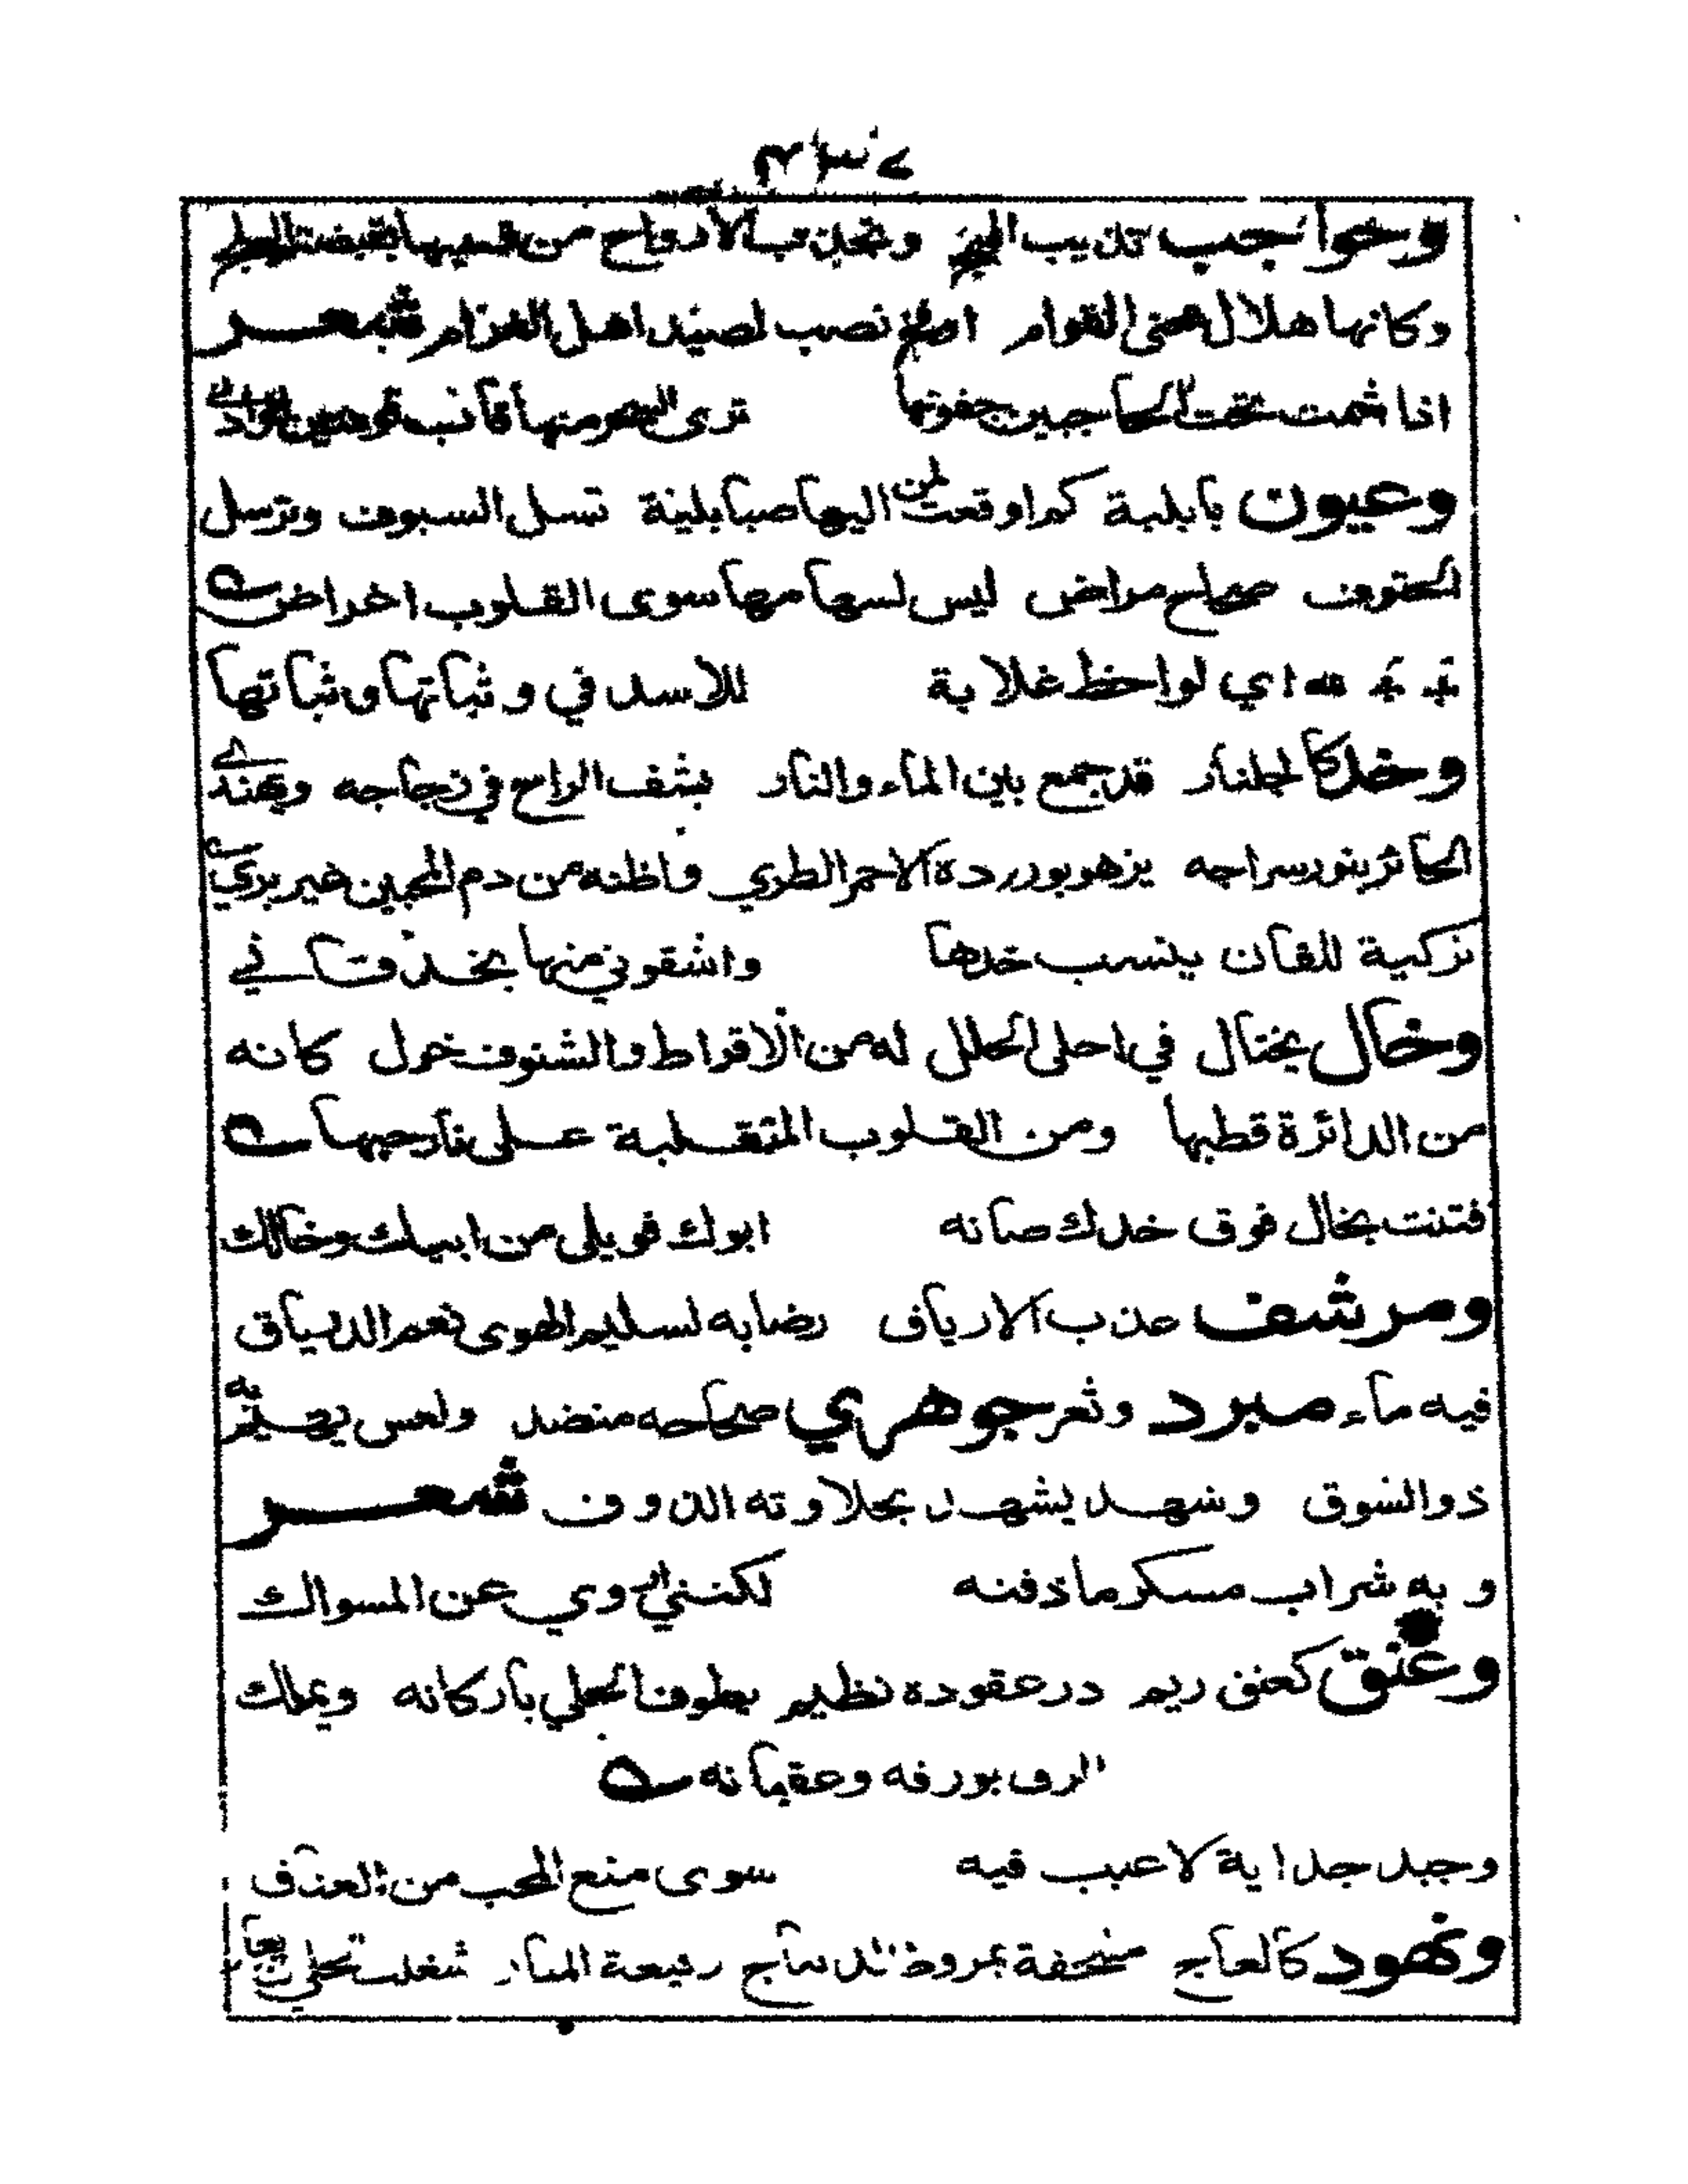 وحواجب تذيب المهج وتجذب الارواح من قسيها بقبضة
وكانها هلال محنى القوام او فخ نصب لصيد اهل الغرام شعر
اذا شمت تحت الحاجبين جفونها ترى السحر منها قاب قوسين او ادنى
وعيون بابلية كم اوقعت لمن اليها صبا بلية تسل السيوف وترسل
الحتوف صحاح مراض ليس لسهامها سوى القلوب اغراض
لله اي لواحظ غلابة للاسد في وثباتها وثباتها
وخد كالجلنار قد جمع بين الماء والنار يشف الراح في زجاجه ويهتدي
الحائر بنور سراجه يزهو بورده الاحمر الطري واظنه من دم المحبين غير بري
تركية للقان ينسب خدها واشقوتي منها بخد قاني
وخال يختال في احلى الحلل له من الاقراط والشنوف خول كانه
من الدائرة قطبها ومن القلوب المتقلبة على نار حبها
فتنت بخال فوق خدك صانه ابوك فويلى من ابيك وخالك
ومرشف عذب الارياف رضابه لسليم الهوى نعم الدرياق
فيه ماء مبرد وثغر جوهري صحاحه منضد ولعس يهيم به
ذو الشوق وشهد يشهد بحلاوته الذوق شعر
وبه شراب مسكر ما ذقنه لكنني اروي عن المسواك
وعنق كعنق ريم در عقوده نظيم يطوف الحلي باركانه ويملك
الرق بورقه وعقيانه
وجيد جداية لا عيب فيه سوى منع المحب من العناق
ونهود كالعاج رفيعة المنار شغلت